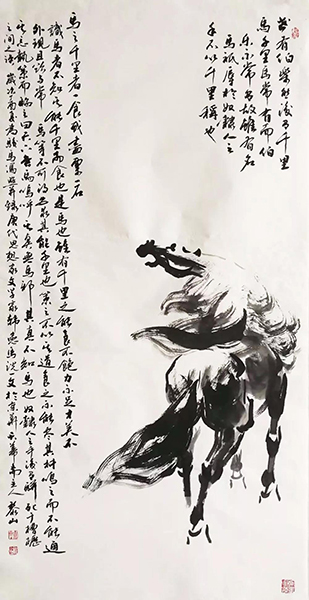 世有伯樂然後有千里
馬千里馬常有而伯
樂不常有故雖有名
馬祗辱於奴隸人之
手不以千里稱也
馬之千里者一食或盡粟一石
識馬者不知其能千里而食也是馬也雖有千里之能食不飽力不足才美不
外現且欲與常馬等不可得安求其能千里也策之不以其道食之不能盡其材鳴之而不能通
其 執策而臨之曰天下無馬嗚呼其真無馬邪其真不知馬也奴隸人之手 駢死于槽櫪
之間之語 歲次 錄唐代思想家文學家韓愈馬說一文於京 主人 山